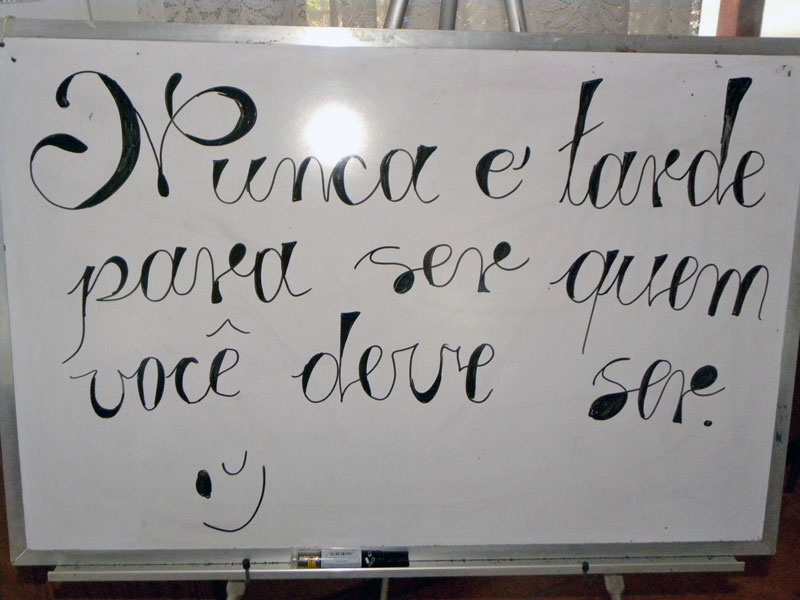 Nunca é tarde
para ser quem
você deve ser.